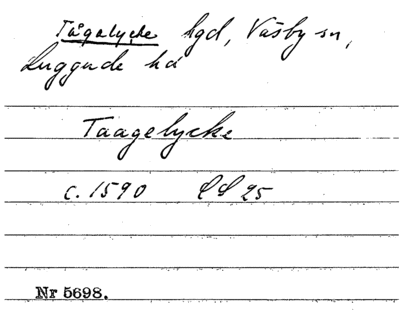 Tågelycke lgd, Väsby sn,
Luggude hd
Taagelycke
c. 1590 LL 25
Nr 5698.